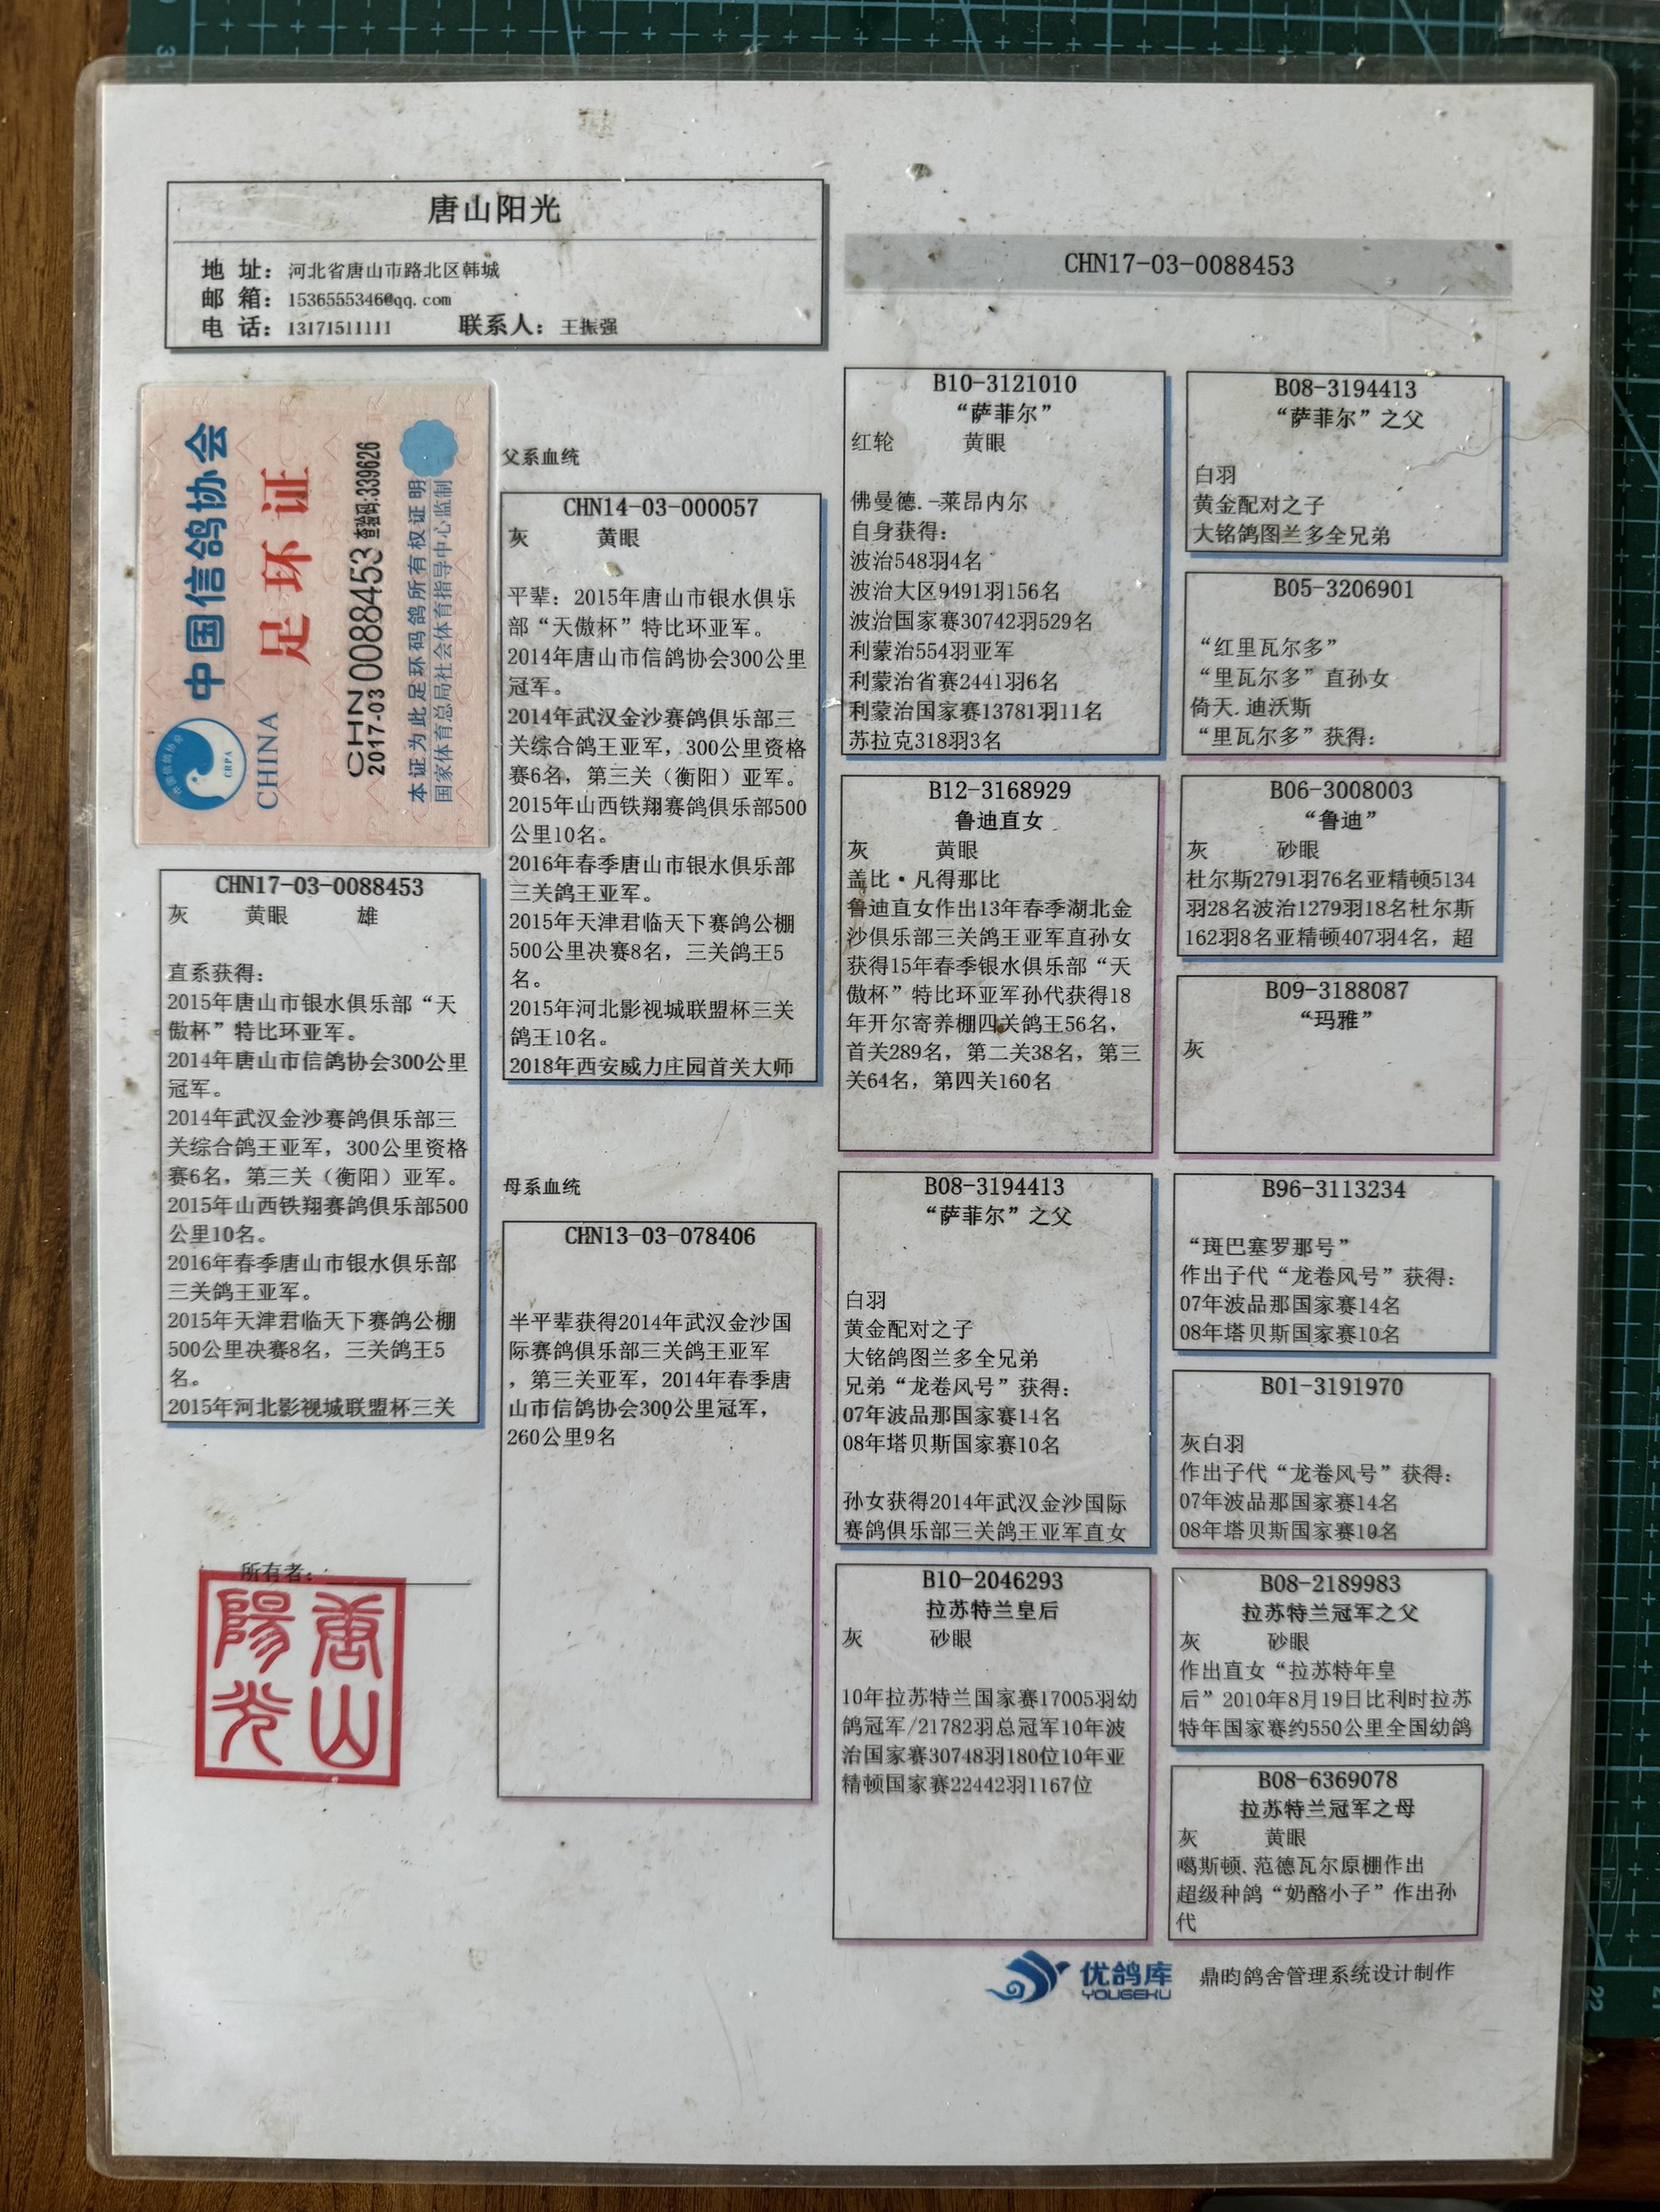 唐山阳光
地 址：河北省唐山市路北区韩城
邮 箱：1536555346@qq.com
电 话：13171511111 联系人：王振强
CHN17-03-0088453
中国信鸽协会
CRPA
CHINA
足环证
CHN
2017-03 0088453 查验码:339626
本证为此足环码鸽所有权证明
国家体育总局社会体育指导中心监制
CHN17-03-0088453
灰 黄眼 雄
直系获得：
2015年唐山市银水俱乐部“天
傲杯”特比环亚军。
2014年唐山市信鸽协会300公里
冠军。
2014年武汉金沙赛鸽俱乐部三
关综合鸽王亚军，300公里资格
赛6名，第三关（衡阳）亚军。
2015年山西铁翔赛鸽俱乐部500
公里10名。
2016年春季唐山市银水俱乐部
三关鸽王亚军。
2015年天津君临天下赛鸽公棚
500公里决赛8名，三关鸽王5
名。
2015年河北影视城联盟杯三关
所有者：
唐山
陽光
父系血统
CHN14-03-000057
灰 黄眼
平辈：2015年唐山市银水俱乐
部“天傲杯”特比环亚军。
2014年唐山市信鸽协会300公里
冠军。
2014年武汉金沙赛鸽俱乐部三
关综合鸽王亚军，300公里资格
赛6名，第三关（衡阳）亚军。
2015年山西铁翔赛鸽俱乐部500
公里10名。
2016年春季唐山市银水俱乐部
三关鸽王亚军。
2015年天津君临天下赛鸽公棚
500公里决赛8名，三关鸽王5
名。
2015年河北影视城联盟杯三关
鸽王10名。
2018年西安威力庄园首关大师
母系血统
CHN13-03-078406
半平辈获得2014年武汉金沙国
际赛鸽俱乐部三关鸽王亚军
，第三关亚军，2014年春季唐
山市信鸽协会300公里冠军，
260公里9名
B10-3121010
“萨菲尔”
红轮 黄眼
佛曼德.-莱昂内尔
自身获得：
波治548羽4名
波治大区9491羽156名
波治国家赛30742羽529名
利蒙治554羽亚军
利蒙治省赛2441羽6名
利蒙治国家赛13781羽11名
苏拉克318羽3名
B12-3168929
鲁迪直女
灰 黄眼
盖比·凡得那比
鲁迪直女作出13年春季湖北金
沙俱乐部三关鸽王亚军直孙女
获得15年春季银水俱乐部“天
傲杯”特比环亚军孙代获得18
年开尔寄养棚四关鸽王56名，
首关289名，第二关38名，第三
关64名，第四关160名
B08-3194413
“萨菲尔”之父
白羽
黄金配对之子
大铭鸽图兰多全兄弟
兄弟“龙卷风号”获得：
07年波品那国家赛14名
08年塔贝斯国家赛10名
孙女获得2014年武汉金沙国际
赛鸽俱乐部三关鸽王亚军直女
B10-2046293
拉苏特兰皇后
灰 砂眼
10年拉苏特兰国家赛17005羽幼
鸽冠军/21782羽总冠军10年波
治国家赛30748羽180位10年亚
精顿国家赛22442羽1167位
B08-3194413
“萨菲尔”之父
白羽
黄金配对之子
大铭鸽图兰多全兄弟
B05-3206901
“红里瓦尔多”
“里瓦尔多”直孙女
倚天.迪沃斯
“里瓦尔多”获得：
B06-3008003
“鲁迪”
灰 砂眼
杜尔斯2791羽76名亚精顿5134
羽28名波治1279羽18名杜尔斯
162羽8名亚精顿407羽4名，超
B09-3188087
“玛雅”
灰
B96-3113234
“斑巴塞罗那号”
作出子代“龙卷风号”获得：
07年波品那国家赛14名
08年塔贝斯国家赛10名
B01-3191970
灰白羽
作出子代“龙卷风号”获得：
07年波品那国家赛14名
08年塔贝斯国家赛10名
B08-2189983
拉苏特兰冠军之父
灰 砂眼
作出直女“拉苏特年皇
后”2010年8月19日比利时拉苏
特年国家赛约550公里全国幼鸽
B08-6369078
拉苏特兰冠军之母
灰 黄眼
噶斯顿.范德瓦尔原棚作出
超级种鸽“奶酪小子”作出孙
代
优鸽库
YOUGEKU
鼎昀鸽舍管理系统设计制作